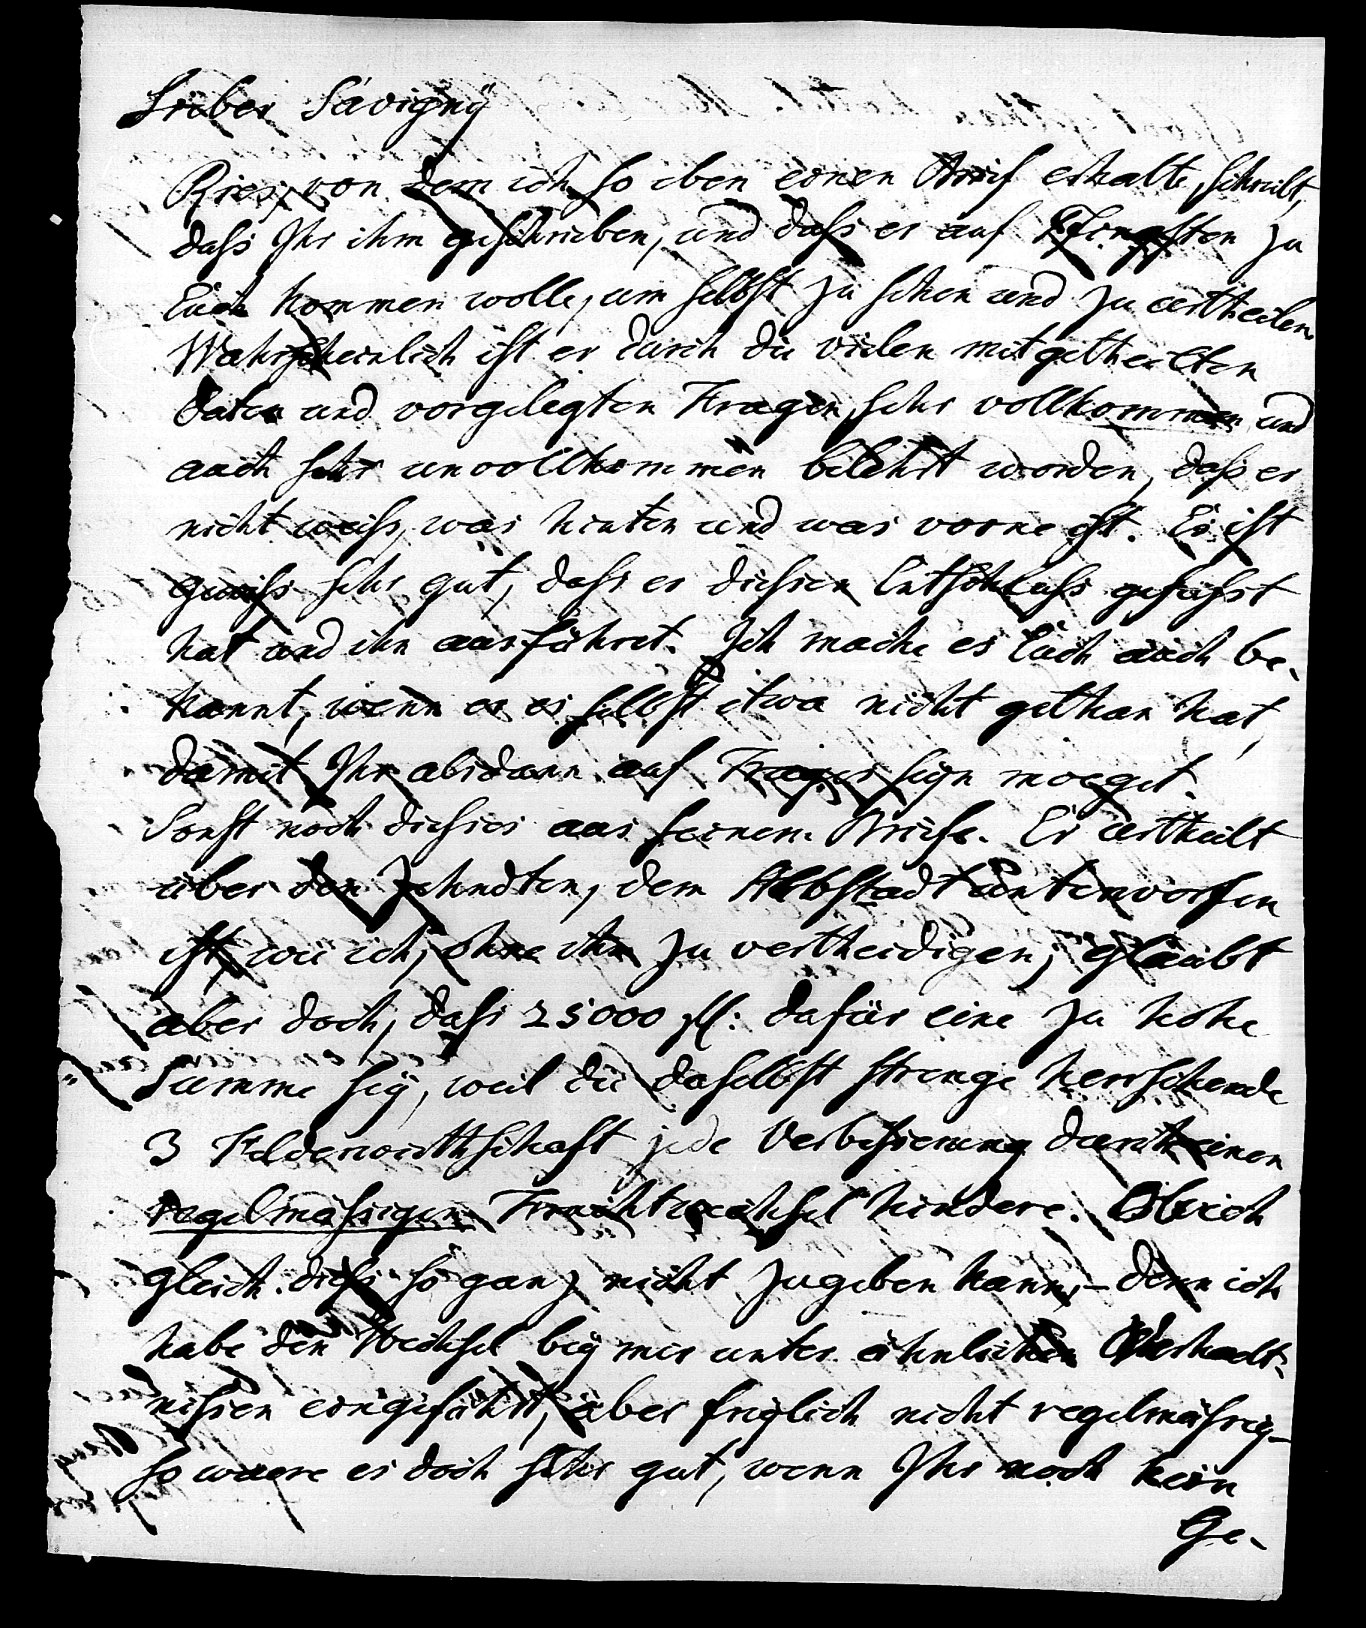 Lieber Savigny
Ries, von dem ich so eben einen Brief erhalte, schreibt,
dass Ihr ihm geschrieben, und dass er auf Pfingsten zu
Euch kommen wolle, um selbst zu sehen und zu urtheilen.
Wahrscheinlich ist er durch die vielen mitgetheilten
Daten und vorgelegten Fragen sehr vollkommen und
auch sehr unvollkommen belehrt worden, dass er
nicht weiss, was hinten und was vorne ist. Es ist
gewiss sehr gut, dass er diessen Entschluss gefasst
hat und ihn ausführet. Ich mache es Euch auch be-
kannt, wenn er es selbst etwa nicht gethan hat,
damit Ihr alsdann auf Trages seyn moeget.
Sonst noch diesses aus seinem Briefe. Er urtheilt
über den Zehndten, dem Albstadt unterworfen
ist, wie ich, ohne ihn zu vertheidigen, glaubt
aber doch, dass 25000 fl: dafür eine zu hohe
Summe sey, weil die daselbst strenge herrschende
3 Felderwirthschaft jede Verbesserung durch einen
regelmässigen Fruchtwechsel hindere. Ob ich
gleich diess so ganz nicht zugeben kann, – denn ich
habe den Wechsel bey mir unter ähnlichen Verhaelt-
nissen eingeführt, aber freylich nicht regelmässig –
so waere es doch sehr gut, wenn Ihr noch kein
Ge-